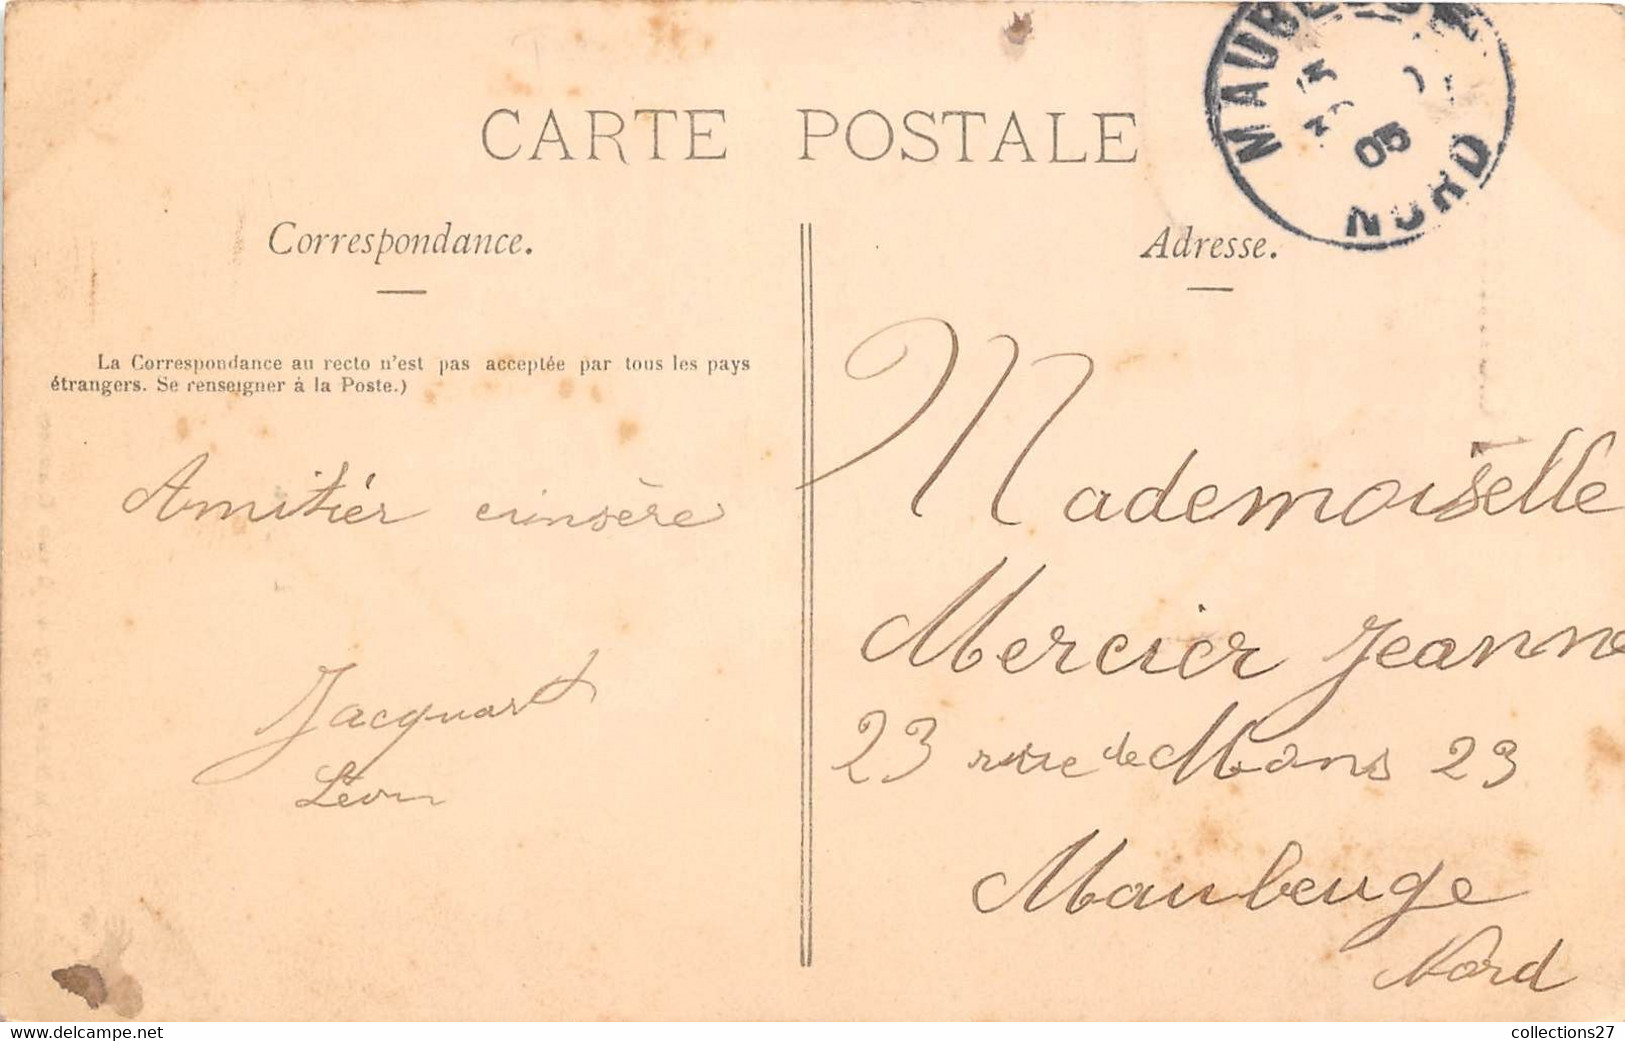 CARTE POSTALE
MAUBEUGE
05
NORD
Correspondance.
La Correspondance au recto n'est pas acceptée par tous les pays
étrangers. Se renseigner à la Poste.)
Amitiér cinsère
Jacquart
Léon
Adresse.
Mademoiselle
Mercier Jeanne
23 rue de Mons 23
Maubeuge
Nord
collections27